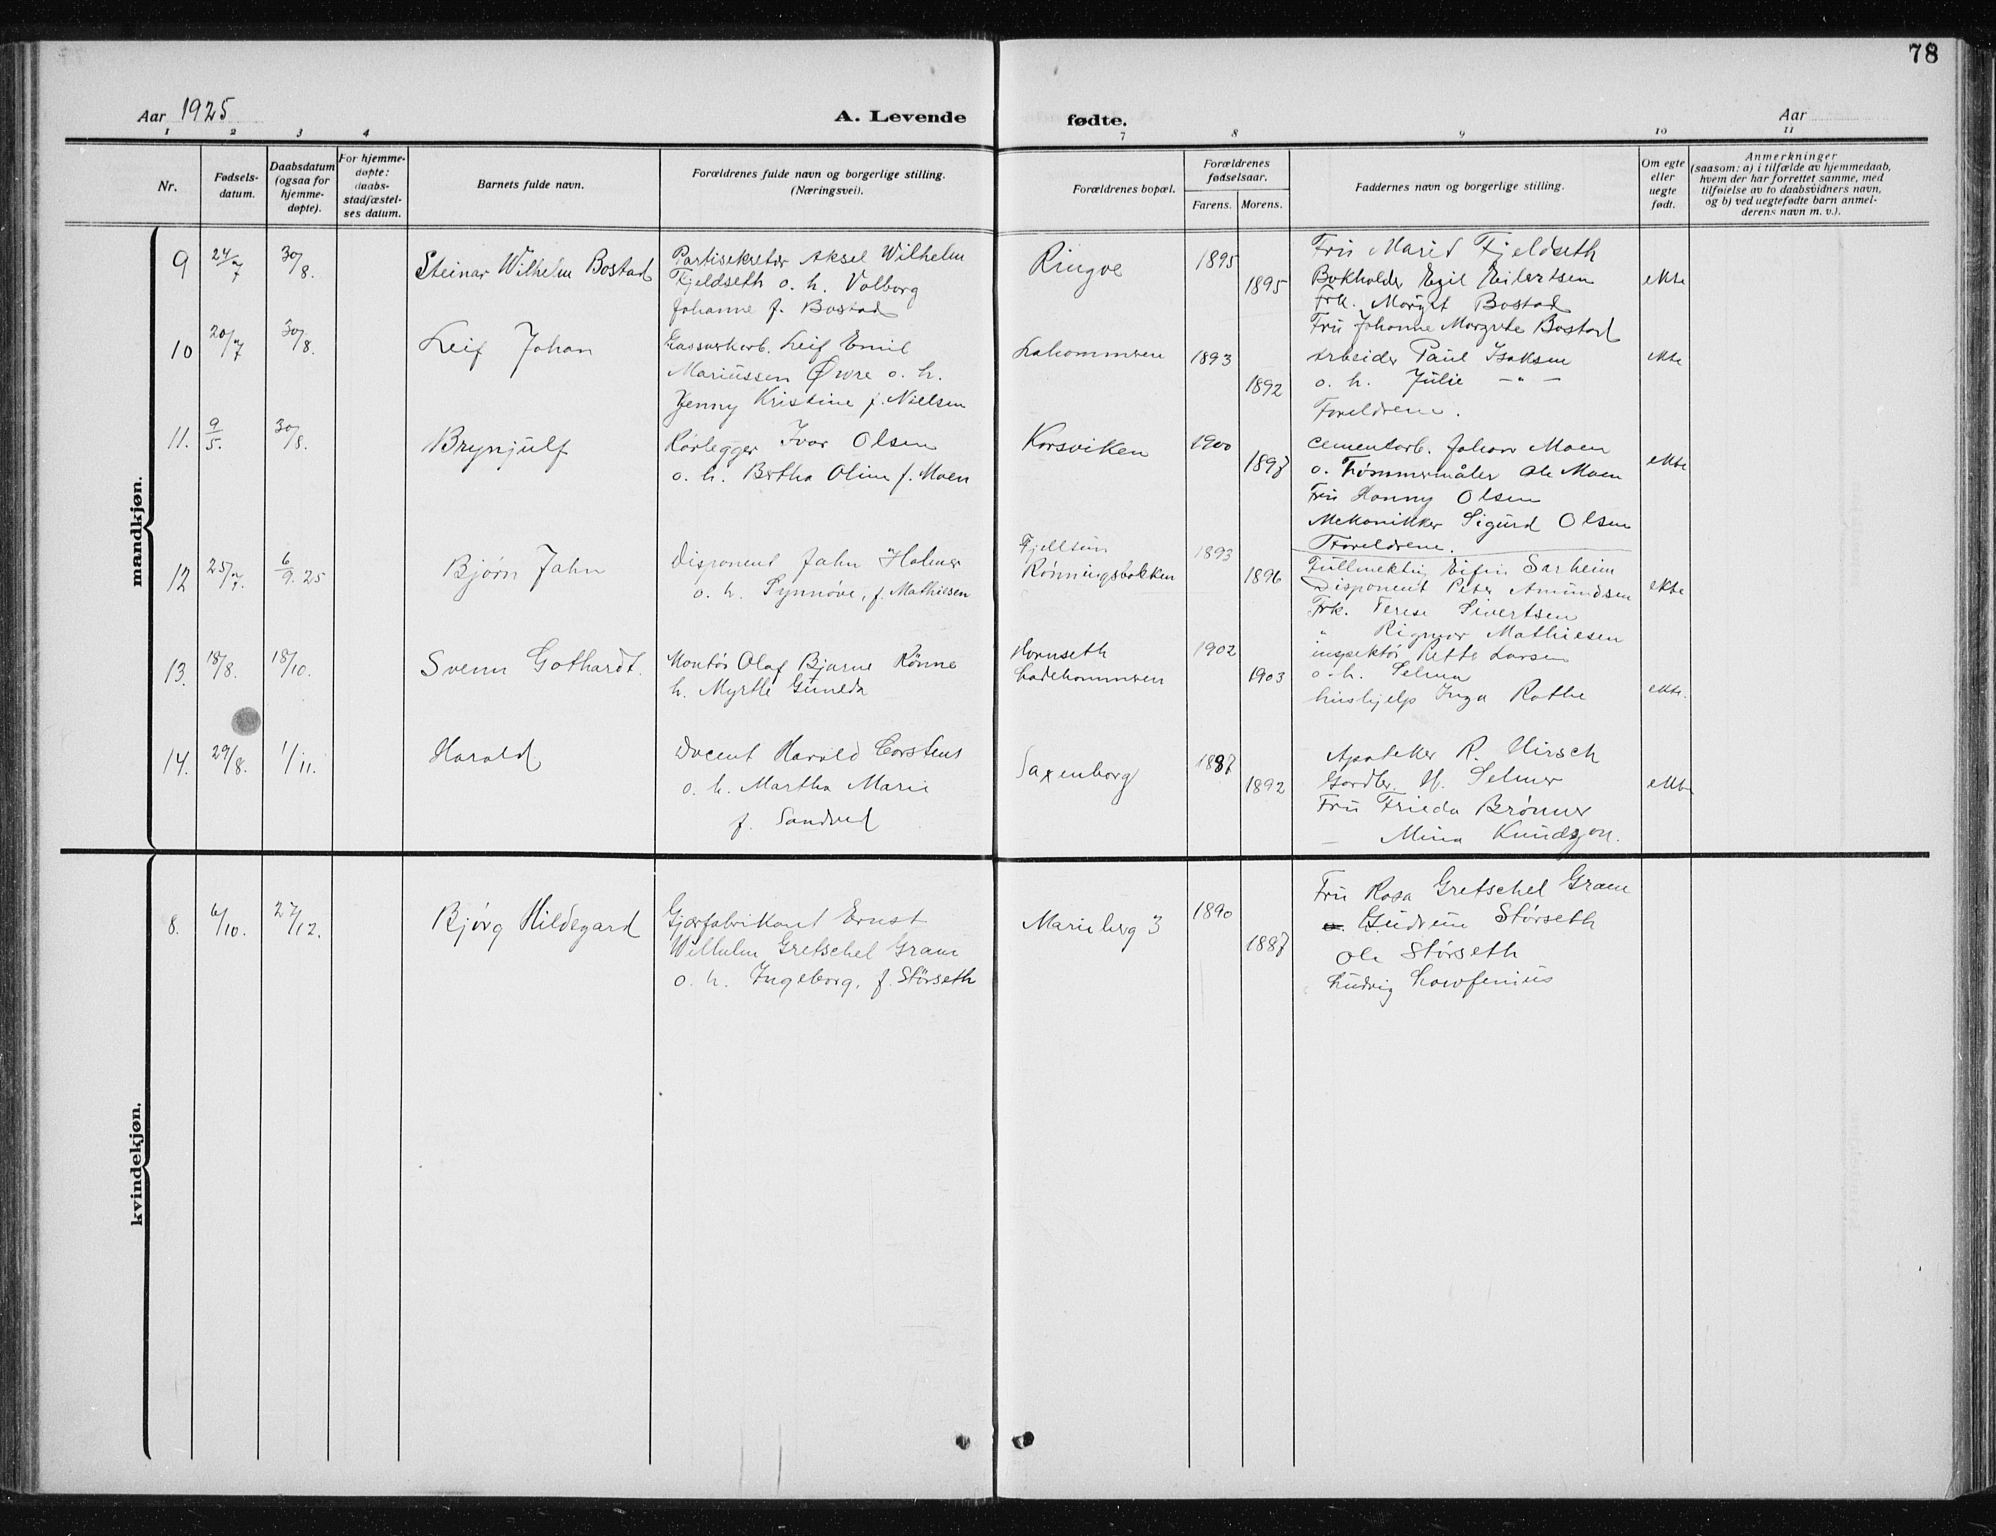 78
Aar 1925
A. Levende fødte.
Aar
1 2 3 4 7 8 9 10 11
Nr.
Fødsels-
datum.
Daabsdatum
(ogsaa for
hjemme-
døpte).
For hjemme-
døpte:
daabs-
stadfæstel-
ses datum.
Barnets fulde navn.
Forældrenes fulde navn og borgerlige stilling.
(Næringsvei).
Forældrenes bopæl.
Forældrenes
fødselsaar.
Farens. Morens.
Faddernes navn og borgerlige stilling.
Om egte
eller
uegte
født.
Anmerkninger
(saasom: a) i tilfælde av hjemmedaab,
hvem der har forrettet samme, med
tilføielse av to daabsvidners navn,
og b) ved uegtefødte barn anmel-
derens navn m. v.).
mandkjøn.
9 24/7 30/8. Steinar Wilhelm Bostad
Partisekretær Aksel Wilhelm
Fjeldseth o. h. Valborg
Johanne f. Bostad
Ringve 1895 1895
Fru Marid Fjeldseth
Bokholder Egil Eilertsen
Frk. Margit Bostad
Fru Johanne Margrete Bostad
ekte
10 20/7 30/8. Leif Johan
Gassverkarb. Leif Emil
Mariussen Øvre o. h.
Jenny Kristine f. Nielsen
Ladehammeren 1893 1892
Arbeider Paul Isaksen
o. h. Julie — " —
Foreldrene.
ekte
11. 9/5. 30/8. Brynjulf
Rørlegger Ivar Olsen
o. h. Bertha Oline f. Moen
Korsviken 1900 1897
Cementarb. Johan Moen
o. Tømmermåler Ole Moen
Fru Hanny Olsen
Mekanikker Sigurd Olsen
Foreldrene.
ekte
12 25/7. 6/9. 25 Bjørn Jahn
Disponent Jahn Holmer
o. h. Synnøve, f. Mathiesen
Rønningsbakken 1893 1896
Fullmektig Sarheim
Disponent Peter Amundsen
Frk. Terese Sivertsen
" Rigmor Mathiesen
ekte
13. 18/8. 18/10. Svenn Gothardt.
Montør Olaf Bjarne Rønne
h. Myrtle Guneda
Ladehammeren 1902 1903
inspektør Larsen
o. h. Selma
hushjelp Inga Rathe
ekte.
14. 29/8. 1/11. Harald
Docent Harald
o. h. Martha Marie
f. Sandved
Saxenborg 1887 1892
Apoteker R. Hirsch
Selmer
Fru Frieda Brønner
— Mina Knudzon.
ekte
kvindekjøn.
8. 6/10. 27/12. Bjørg Hildegard
Gjærfabrikant Ernst
Wilhelm Gretschel Gram
o. h. Ingeborg, f. Størseth
Marieberg 3 1890 1887
Fru Rosa Gretschel Gram
Gudrun Størseth
Ole Størseth
Ludvig